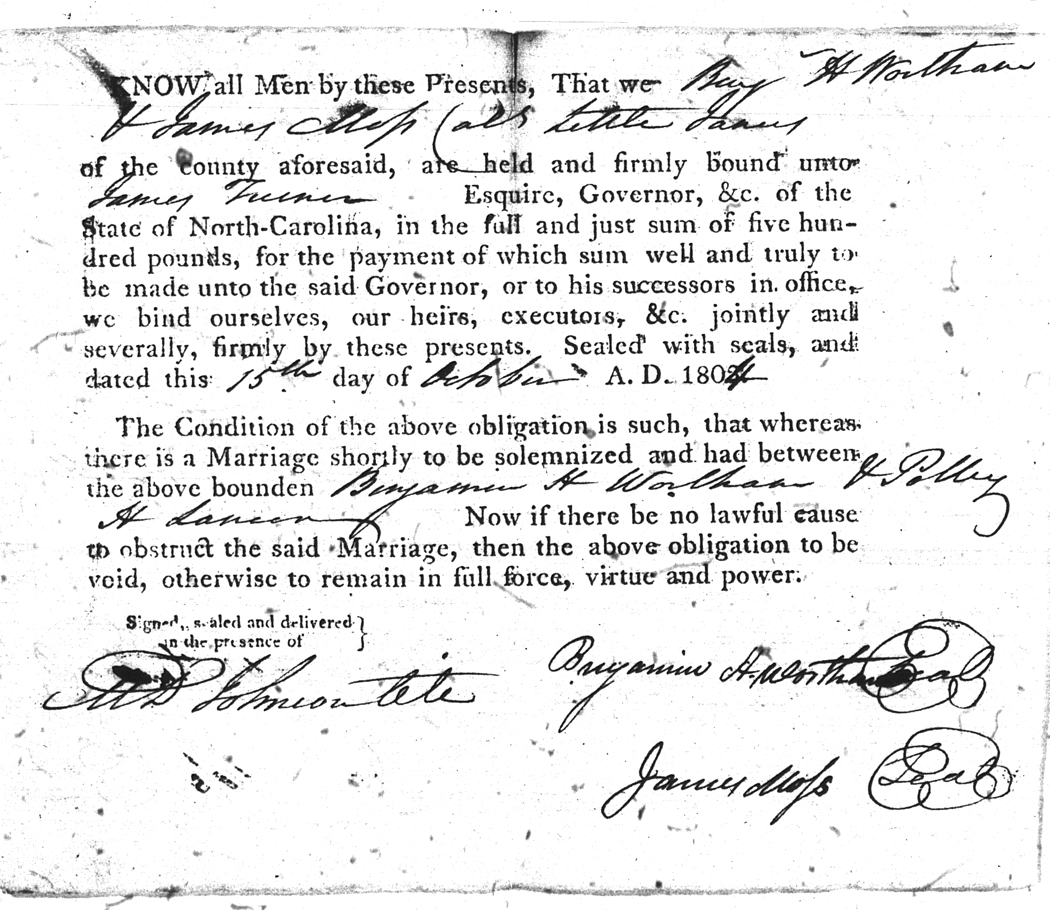 KNOW all Men by these Presents, That we Benj H Wortham
& James Moss (als Little James
of the county aforesaid, are held and firmly bound unto
James Turner Esquire, Governor, &c. of the
State of North-Carolina, in the full and just sum of five hun-
dred pounds, for the payment of which sum well and truly to
be made unto the said Governor, or to his successors in office,
we bind ourselves, our heirs, executors, &c. jointly and
severally, firmly by these presents. Sealed with seals, and
dated this 15th day of October A. D. 1804
The Condition of the above obligation is such, that whereas
there is a Marriage shortly to be solemnized and had between
the above bounden Benjamin H Wortham & Polley
H Now if there be no lawful cause
to obstruct the said Marriage, then the above obligation to be
void, otherwise to remain in full force, virtue and power.
Signed, sealed and delivered }
in the presence of }
M D Johnson
Benjamin H. Wortham Seal
James Moss Seal